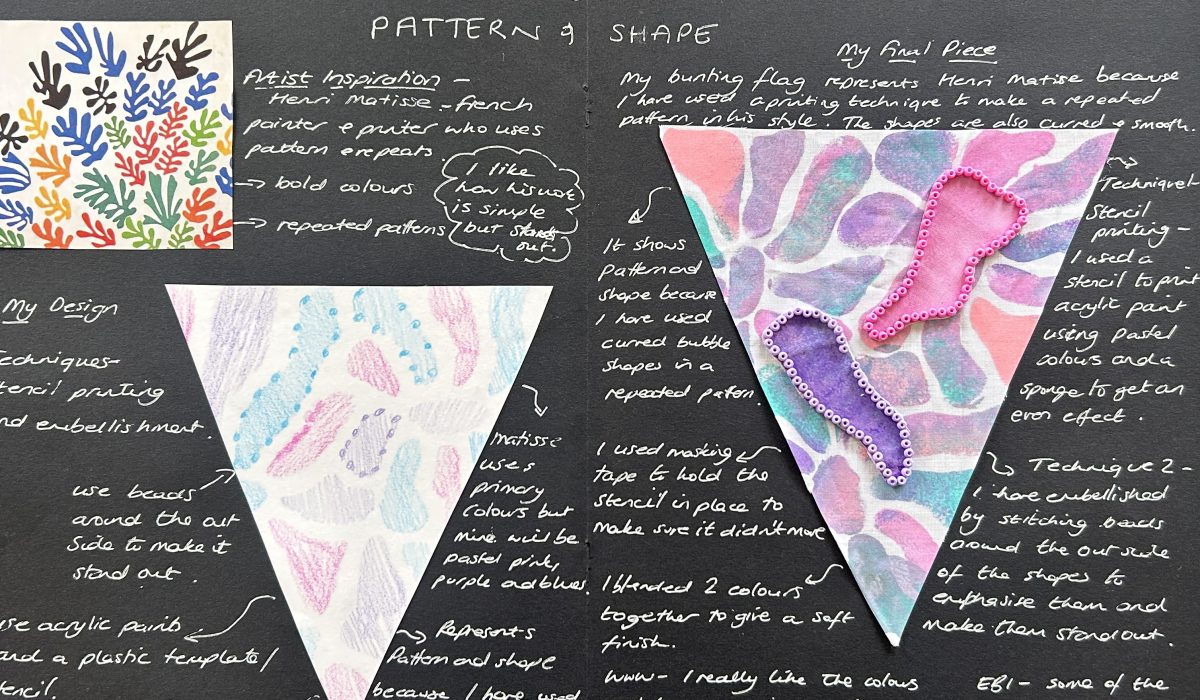 PATTERN & SHAPE
Artist Inspiration -
Henri Matisse - french
painter & printer who uses
pattern & repeats.
→ bold colours
→ repeated patterns
I like
how his work
is simple
but stands
out.
My Design
Techniques-
stencil printing
and embellishment.
use beads
around the out
side to make it
stand out.
use acrylic paints
and a plastic template/
stencil.
Matisse
uses
primary
colours but
mine will be
pastel pink,
purple and blues.
Represents
Pattern and shape
because I have used
My Final Piece
My bunting flag represents Henri Matisse because
I have used a printing technique to make a repeated
pattern in his style. The shapes are also curred & smooth.
It shows
pattern and
shape because
I have used
curred bubble
shapes in a
repeated pattern.
I used masking
tape to hold the
stencil in place to
make sure it didn't move
I blended 2 colours
together to give a soft
finish.
WWW - I really like the colours
Technique 1
Stencil
printing -
I used a
stencil to print
acrylic paint
using pastel
colours and a
sponge to get an
even effect.
Technique 2 -
I have embellished
by stitching beads
around the outside
of the shapes to
emphasise them and
make them stand out.
EBI - some of the